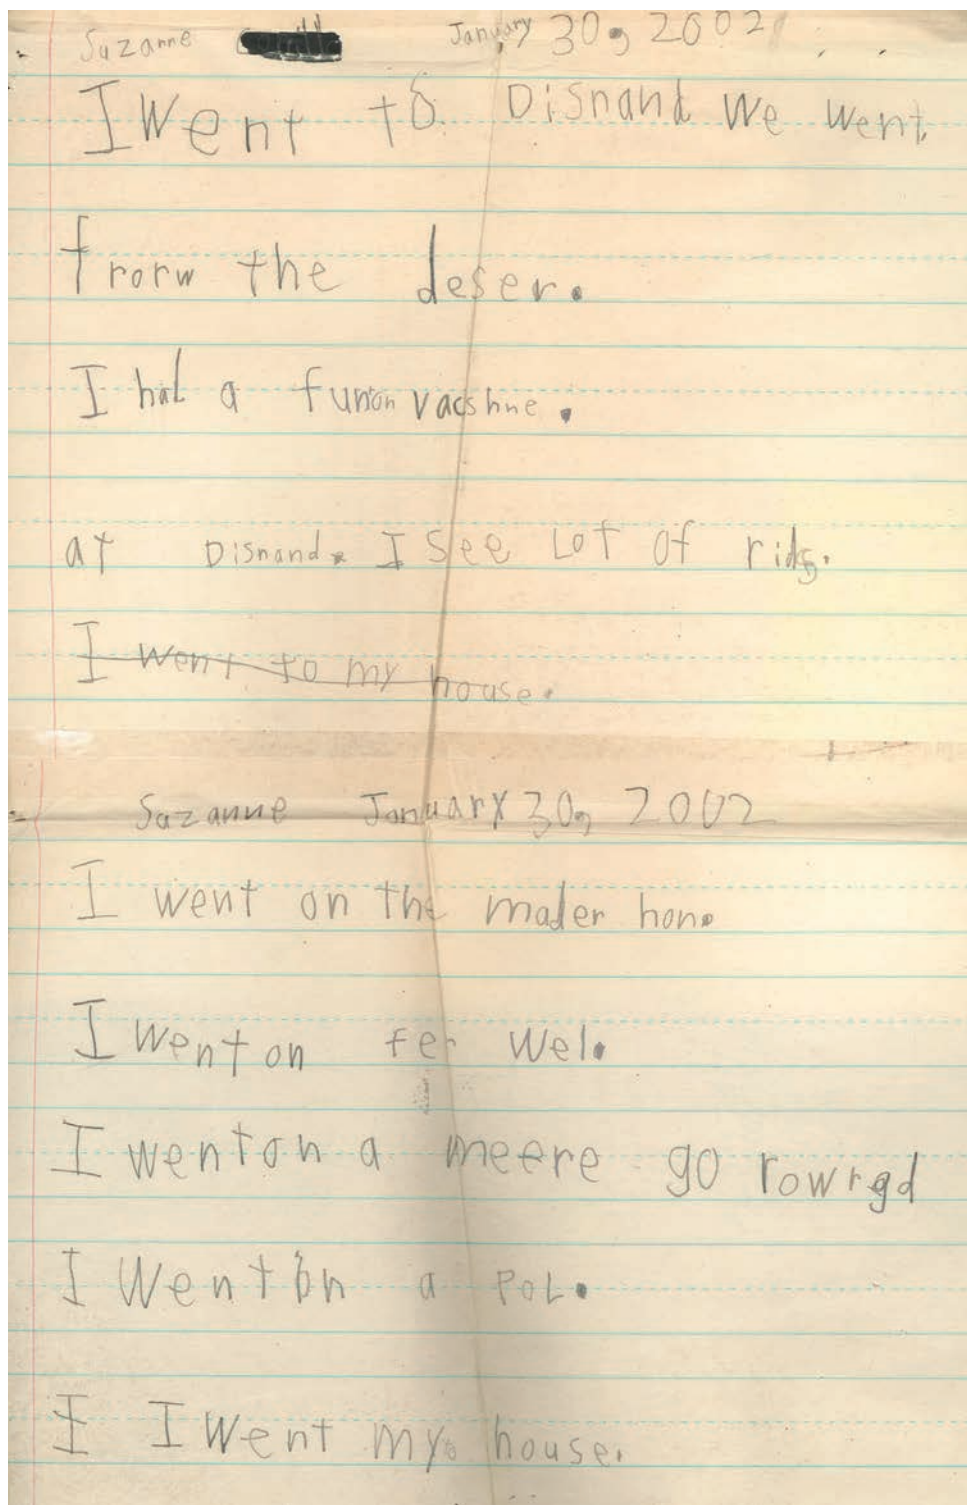 Suzanne January 30, 2002
I Went to Disnand We went
frorw the deser.
I had a funon vacshne.
at Disnand. I see Lot of rids.
I went to my house.
Suzanne January 30, 2002
I went on the mader hon.
I went on fer wel.
I went on a meere go rowrgd
I Went on a POL.
I I Went my house.